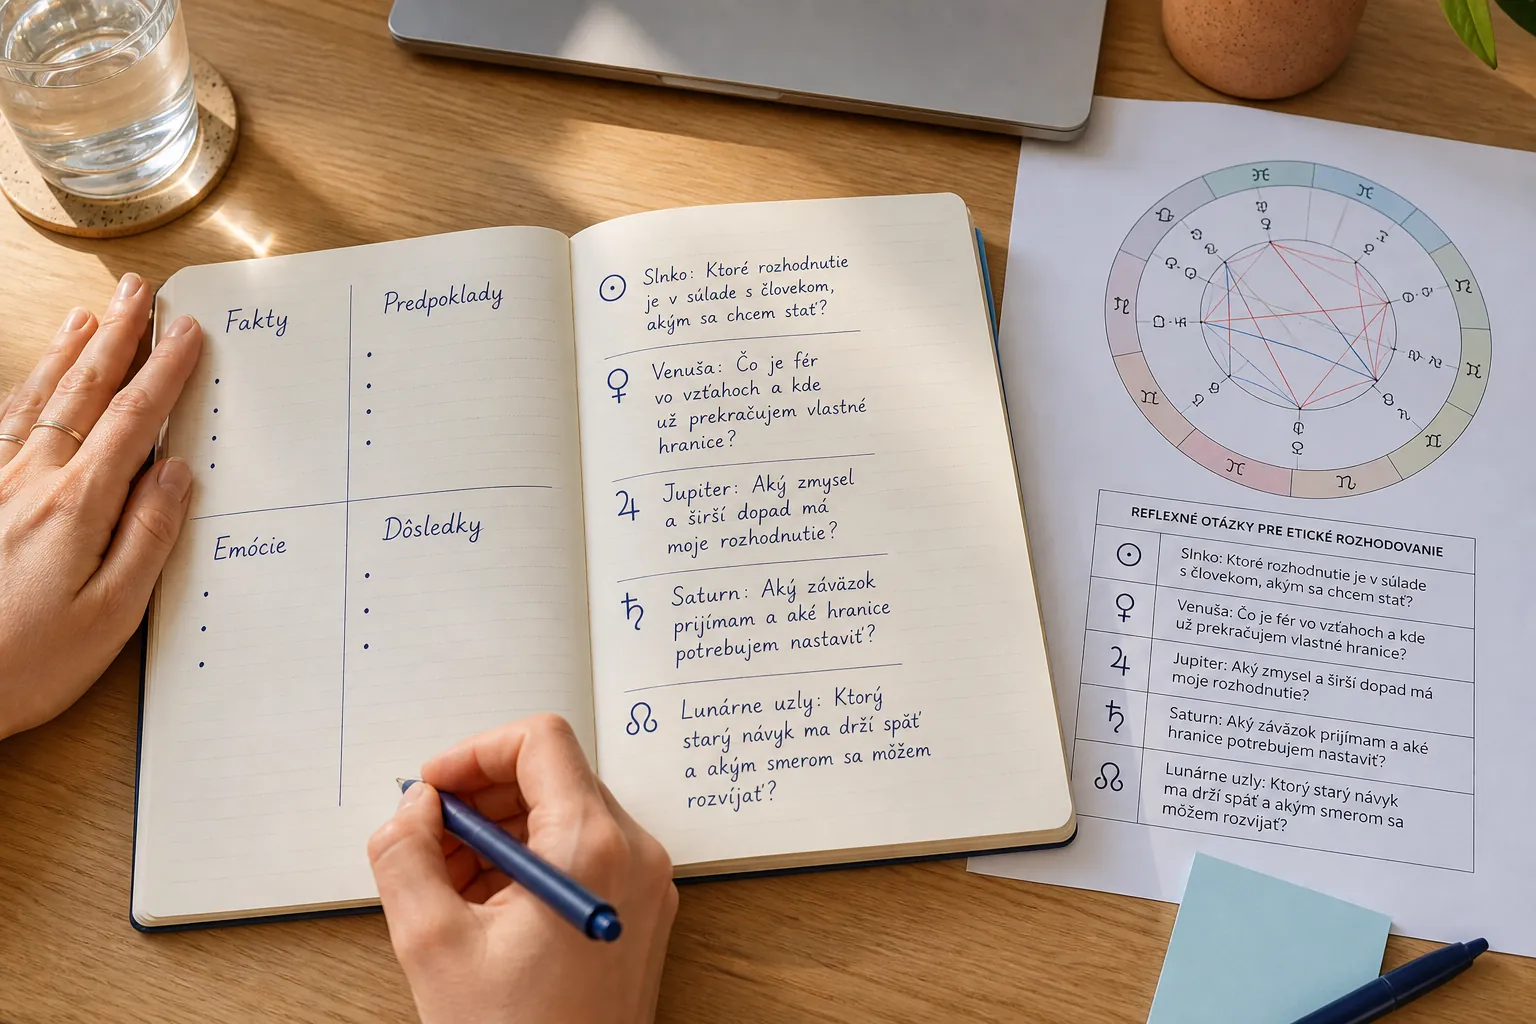 Fakty
Predpoklady
Emócie
Dôsledky
Slnko: Ktoré rozhodnutie
je v súlade s človekom,
akým sa chcem stať?
Venuša: Čo je fér
vo vzťahoch a kde
už prekračujem vlastné
hranice?
Jupiter: Aký zmysel
a širší dopad má
moje rozhodnutie?
Saturn: Aký záväzok
prijímam a aké hranice
potrebujem nastaviť?
Lunárne uzly: Ktorý
starý návyk ma drží späť
a akým smerom sa môžem
rozvíjať?
REFLEXNÉ OTÁZKY PRE ETICKÉ ROZHODOVANIE
Slnko: Ktoré rozhodnutie je v súlade
s človekom, akým sa chcem stať?
Venuša: Čo je fér vo vzťahoch a kde
už prekračujem vlastné hranice?
Jupiter: Aký zmysel a širší dopad má
moje rozhodnutie?
Saturn: Aký záväzok prijímam a aké
hranice potrebujem nastaviť?
Lunárne uzly: Ktorý starý návyk
ma drží späť a akým smerom sa
môžem rozvíjať?